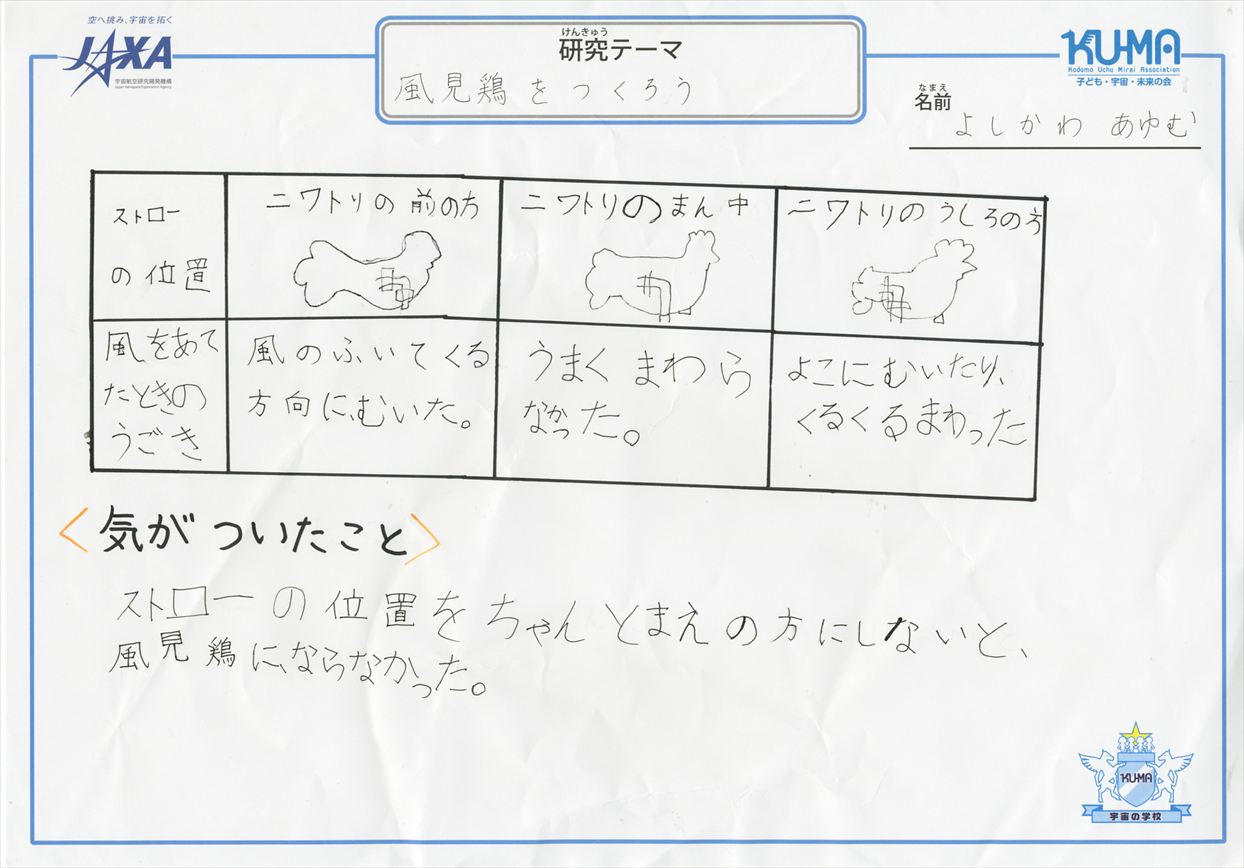 空へ挑み、宇宙を拓く
JAXA
宇宙航空研究開発機構
Japan Aerospace Exploration Agency
けんきゅう
研究テーマ
風見鶏をつくろう
KU-MA
Kodomo Uchu Mirai Association
子ども・宇宙・未来の会
なまえ
名前
よしかわ あゆむ
ストロー
の位置
ニワトリの前の方
ニワトリのまん中
ニワトリのうしろの方
風をあて
たときの
うごき
風のふいてくる
方向に、むいた。
うまくまわら
なかった。
よこにむいたり、
くるくるまわった
<気がついたこと>
ストローの位置をちゃんとまえの方にしないと、
風見鶏に、ならなかった。
KU-MA
宇宙の学校